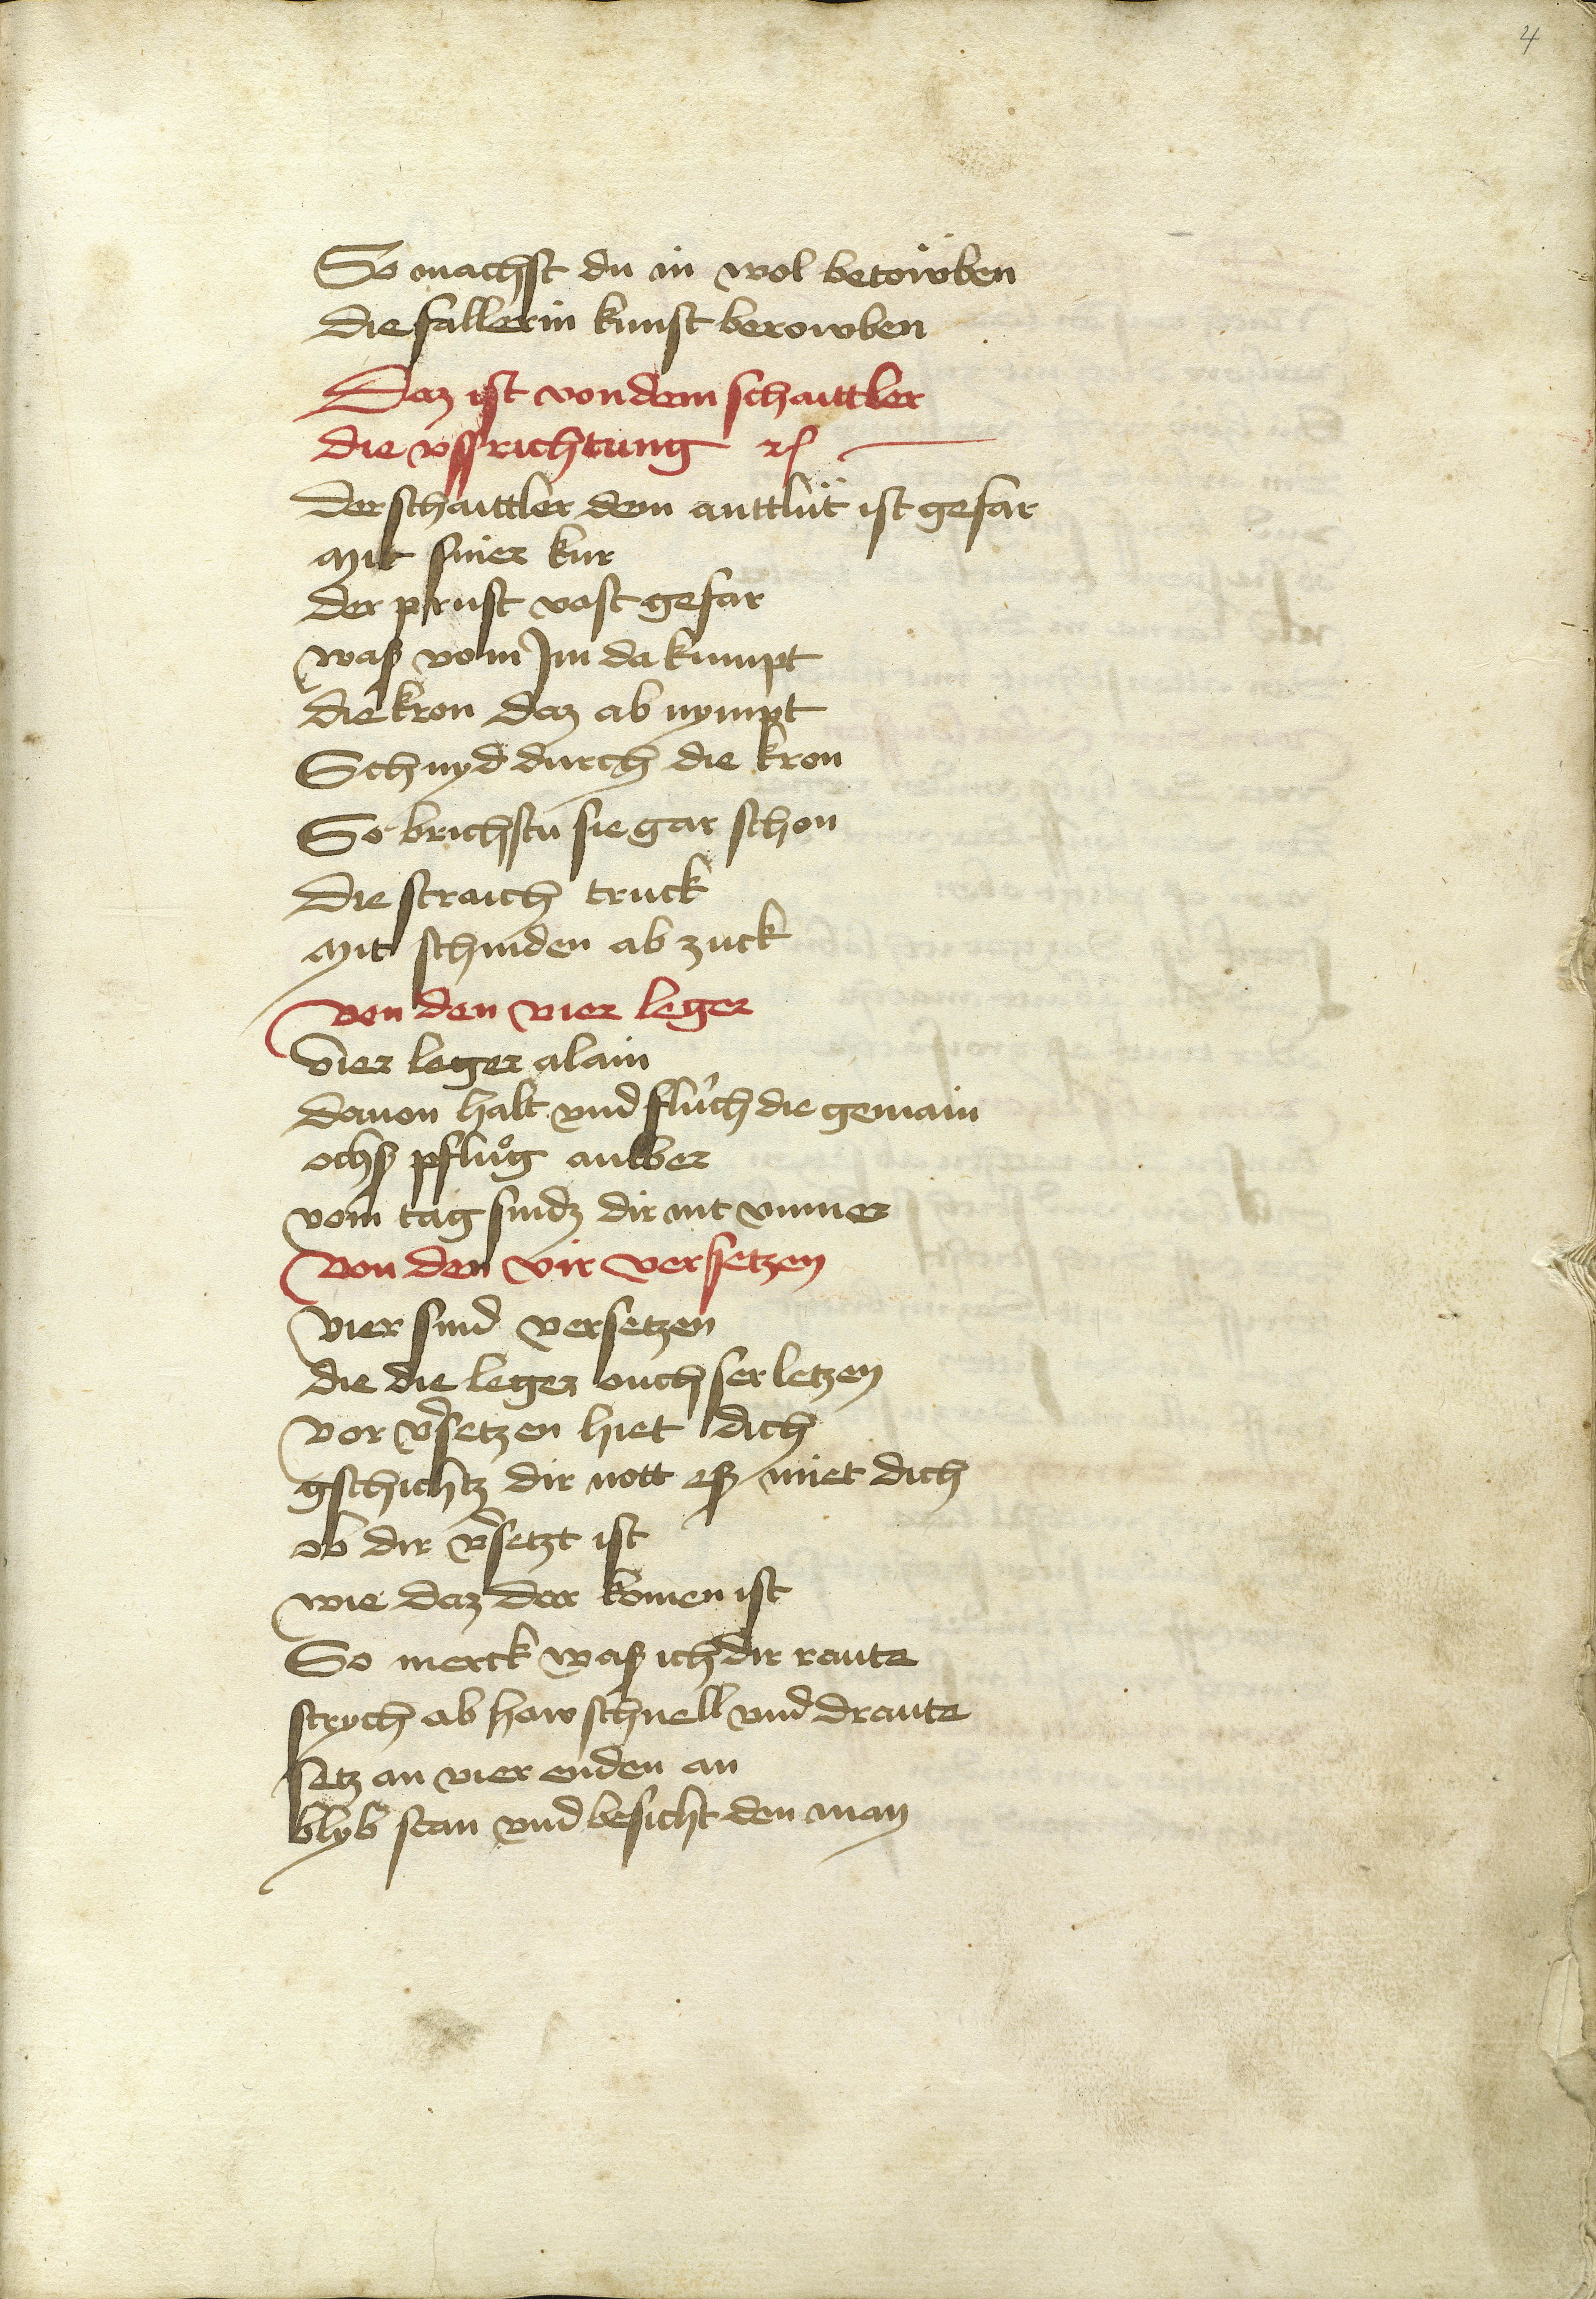 4
So machst du in wol betöwben
die fällerin kunst berowben
Daz ist von dem schaittler
die vssrichtung
der schaittler dem anttlüt ist gefar
mit siner kur
der prust vast gefar
waß vom Im da kumpt
die kron daz ab nympt
Schnyd durch die kron
So brichstu sie gar schon
die straich truck
mit schniden ab zuck
von den vier leger
vier leger alain
dauon halt vnd flüch die gemain
ochß pflůg alber
vom tag sindz dir nit vnmer
von den vir versetzen
vier sind versetzen
die die leger ouch ser letzen
vor v̾setzen hiet dich
gschichtz dir nott eß miet dich
ob dir v̾setzt ist
wie daz dar komen ist
So merck waß ich dir raute
strych ab how schnell vnd draute
setz an vier enden an
blyb stan vnd besicht den man